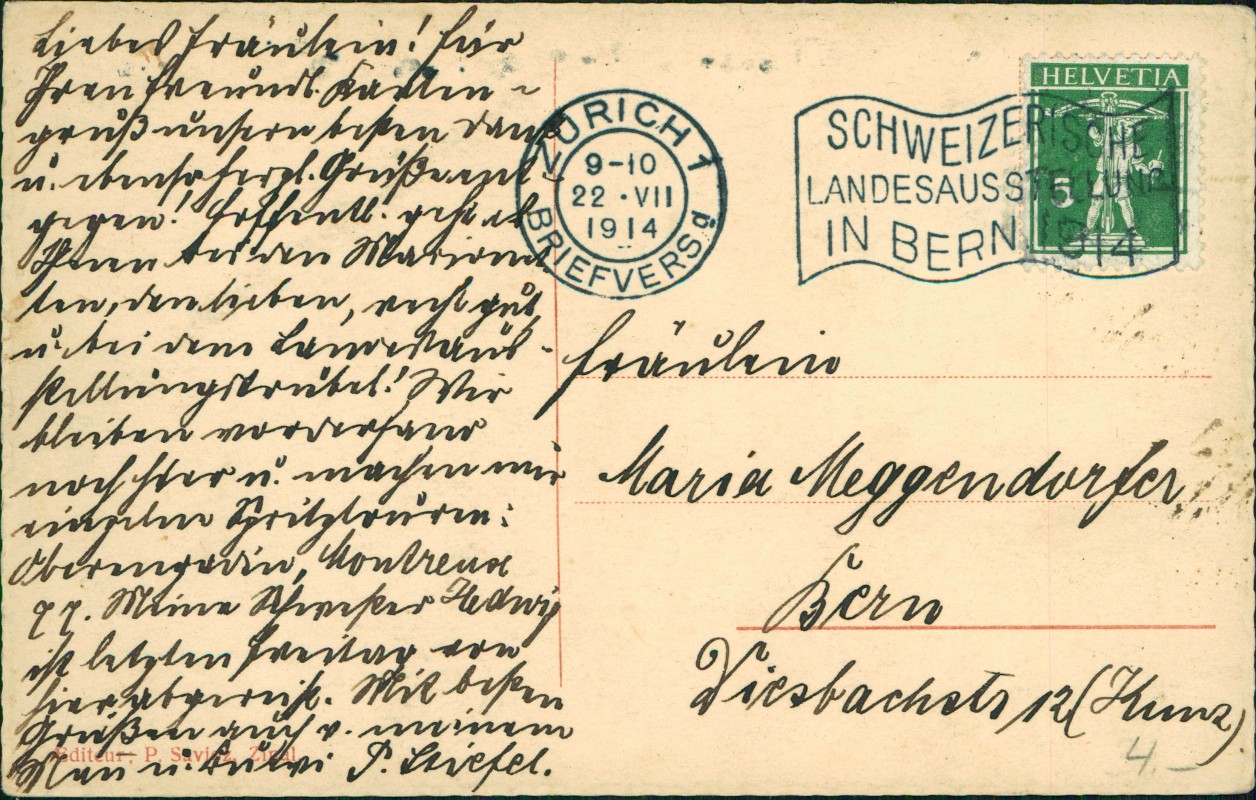 Liebes Fräulein! Für
Ihren freundl. Karten-
gruß unsern besten Dank
u. ebenso herzl. Grüße ent-
gegen! Hoffentl. geht es
Ihnen bei den Marionet
ten, den lieben, recht gut,
u. bei dem Landesaus-
stellungstrubel! Wir
bleiben vorderhand
noch hier u. machen nur
einzelne Spritztouren:
Oberengadin, Montreux
pp. Meine Schwester Hedwig
ist letzten Freitag von
hier abgereist. Mit besten
Grüßen auch v. meinem
Mann u. P. Stiefel.
Editeur: P. Savioz, Zinal
ZÜRICH 1
9-10
22·VII
1914
BRIEFVERSd
SCHWEIZERISCHE
LANDESAUSSTELLUNG
IN BERN 1914
HELVETIA
5
Fräulein
Maria Meggendorfer
Bern
12 (Kunz)
4.—